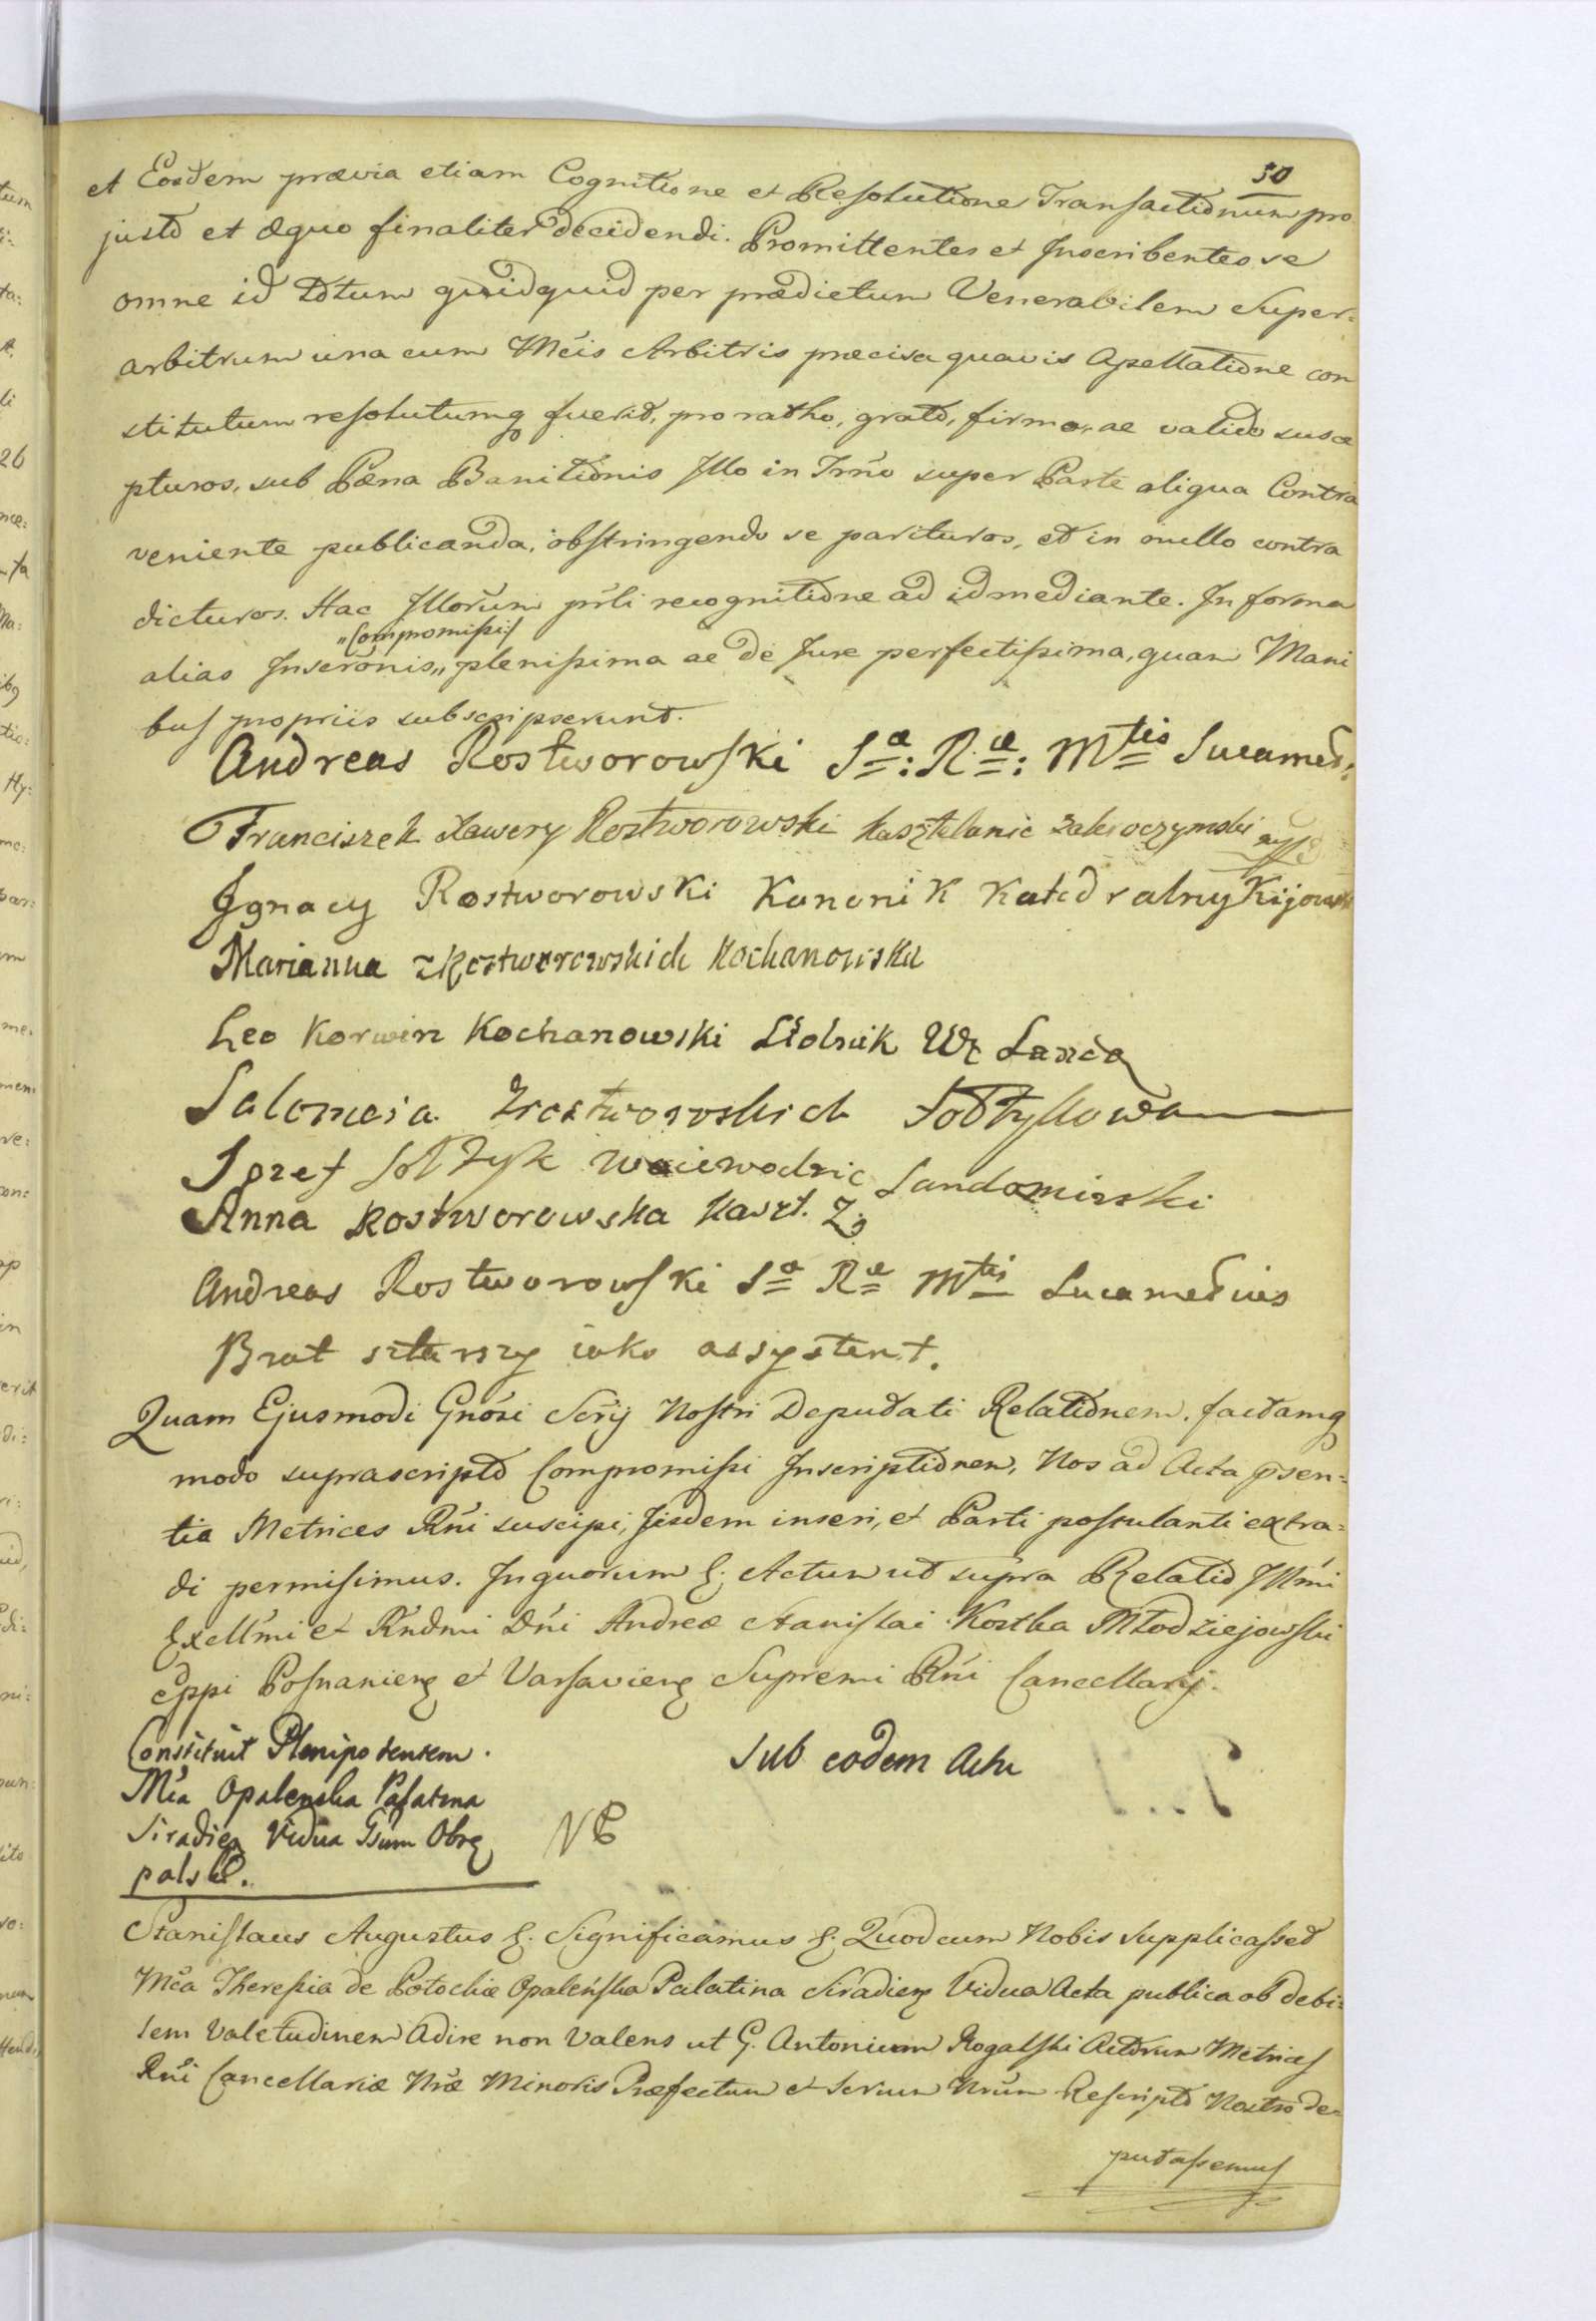 50
et Eosdem prævia etiam Cognitione et Resolutione Transactionum pro
justo et æquo finaliter decidendi. Promittentes et Inscribentes se
omne id totum quidquid per prædictum Venerabilem Super=
arbitrum una cum Mcis Arbitris præcisa quavis Apellatione con
stitutum resolutumq fuerit, pro ratho, grato, firmo, ac valido susce
pturos, sub Pæna Banitionis Illo in Trno super Parte aliqua Contra
veniente publicanda, obstringendo se parituros, et in nullo contra
dicturos. Hac Illorum prsli recognitione ad id mediante. In forma
"Compromissi:/
alias Inscronis,, plenissima ac de Jure perfectissima, quam Mani
bus propriis subscripserunt.
Andreas Rostworowski Sæ: Ræ: Mtis Sucamer:
Franciszek Xawery Rostworowski kasztelanic Zakroczymski
Ignacy Rostworowski Kanonik Katedralny Kijowski
Marianna z Rostworowskich Kochanowska
Leo Korwin Kochanowski Stolnik
Salomeia Zrostworoskich Sołtykowa
Iozef Sołtyk Woiewodzic Sandomirski
Anna Rostworowska Kaszt. Z.
Andreas Rostworowski Sæ Ræ Mtis Sucamerius
Brat starszy iako assystent.
Quam Ejusmodi Gnosi Scrij Nostri Deputati Relationem, factamq
modo suprascripto Compromissi Inscriptionem, Nos ad Acta prsen=
tia Metrices Rni suscipi, Iisdem inseri, et Parti postulanti extra=
di permisimus. In quorum &. Actum ut supra Relatio Illmi
Exellmi et Rndmi Dni Andreæ Stanislai Kostka Młodziejowski
Eppi Posnanien et Varsavien Supremi Rni Cancellarij.
Constituit Plenipotentem.
Mca Opalenska Palatina
Siradien Vidua Gsum Obrę
palski.
NP
Sub eodem Actu
Stanislaus Augustus &. Significamus &. Quod cum Nobis Supplicasset
Mca Theresia de Potockie Opaleńska Palatina Siradien Vidua Acta publica ob debi=
lem Valetudinem Adire non Valens ut G. Antonium Rogalski Actorum Metrices
Rni Cancellariæ Nræ Minoris Præfectum et Scrium Nrum Rescripto Nostro de=
putassemus